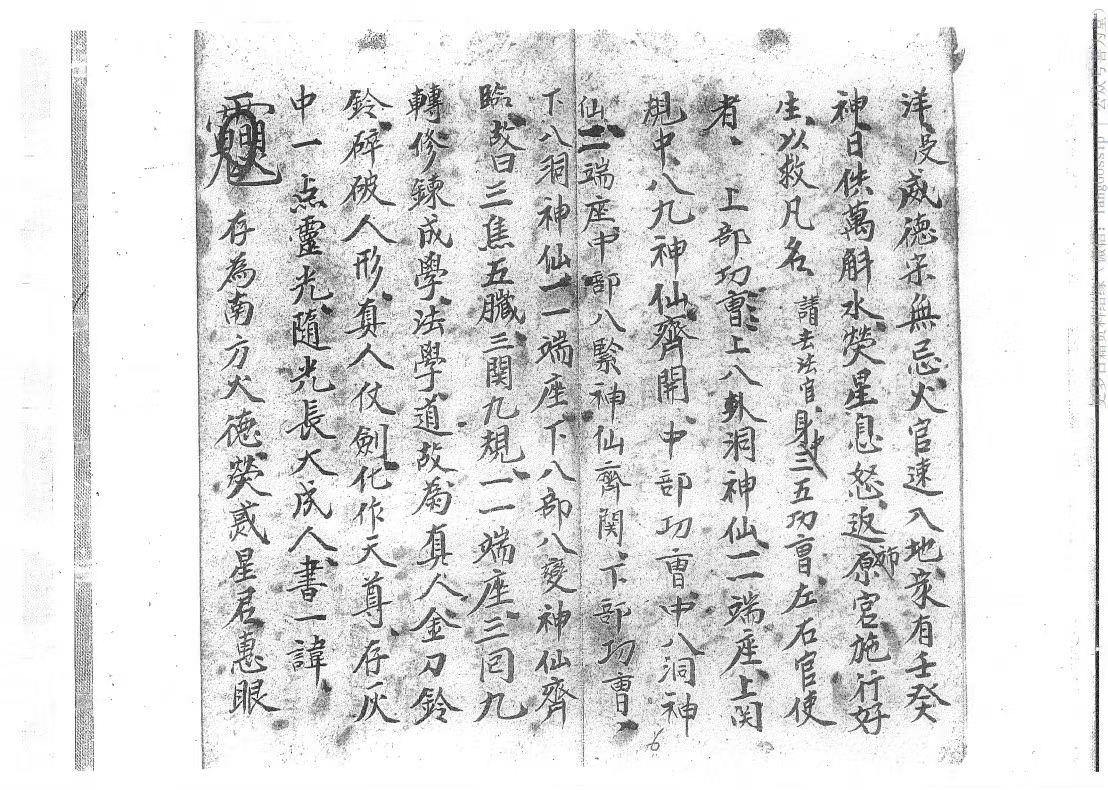 洋受威德宗無忌火官速入地衆有壬癸
神日供萬斛水熒星息怒返原宮施行好
生以救凡名 請去法官身中三五功曹左右官使
者 上部功曹上八卦洞神仙一一端座上関
規中八九神仙齊開中部功曹中八洞神
仙一一端座中部八緊神仙齊関下部功曹
下八洞神仙一一端座下八部八變神仙齊
臨故曰三焦五臟三関九規一一端座三囘九
轉修鍊成學法學道故為真人金刀鈴
鈴碎破人形真人仗劍化作天尊存灰
中一点靈光隨光長大成人書一諱
存為南方火德熒惑星君惠眼
6